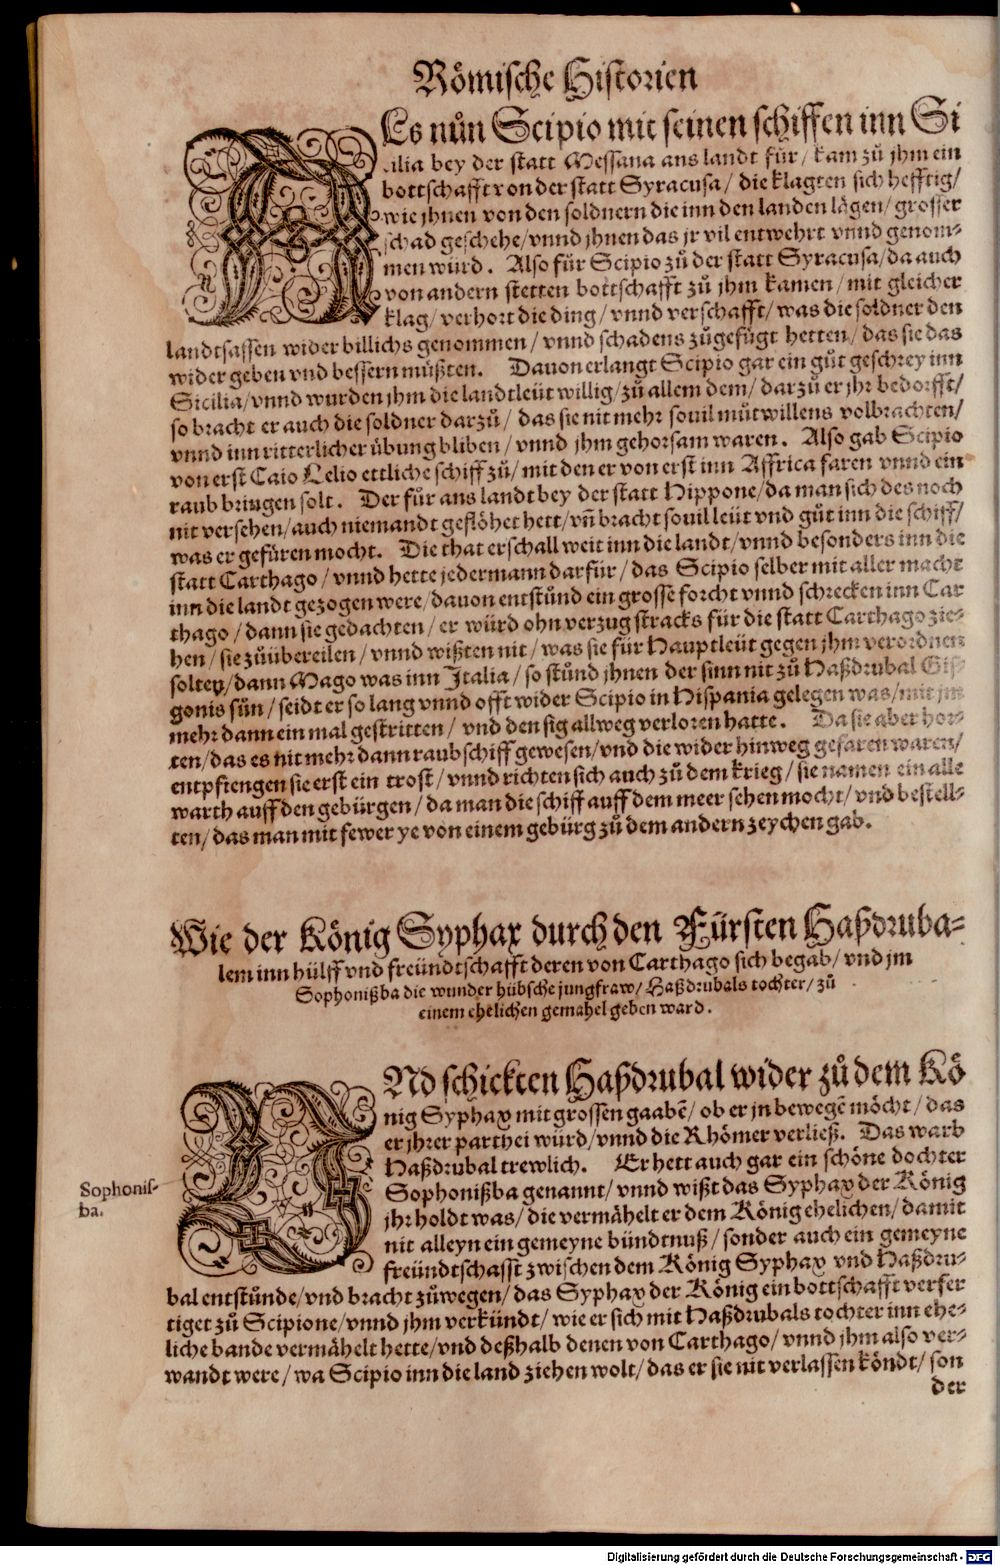 Römische Historien
ALs nůn Scipio mit seinen schiffen inn Si
cilia bey der statt Messana ans landt fůr / kam zů jhm ein
bottschafft von der statt Syracusa / die klagten sich hefftig /
wie jhnen von den soldnern die inn den landen lägen / grosser
schad geschehe / vnnd jhnen das jr vil entwehrt vnnd genom-
men würd. Also fůr Scipio zů der statt Syracusa / da auch
von andern stetten bottschafft zů jhm kamen / mit gleicher
klag / verhort die ding / vnnd verschafft / was die soldner den
landtsassen wider billichs genommen / vnnd schadens zůgefügt hetten / das sie das
wider geben vnd bessern müßten. Dauon erlangt Scipio gar ein gůt geschrey inn
Sicilia / vnnd wurden jhm die landtleüt willig / zů allem dem / darzů er jhr bedorfft /
so bracht er auch die soldner darzů / das sie nit mehr souil můtwillens volbrachten /
vnnd inn ritterlicher übung bliben / vnnd jhm gehorsam waren. Also gab Scipio
von erst Caio Lelio ettliche schiff zů / mit den er von erst inn Affrica faren vnnd ein
raub bringen solt. Der fůr ans landt bey der statt Hippone / da man sich des noch
nit versehen / auch niemandt geflöhet hett / vñ bracht souil leüt vnd gůt inn die schiff /
was er gefüren mocht. Die that erschall weit inn die landt / vnnd besonders inn die
statt Carthago / vnnd hette jedermann darfür / das Scipio selber mit aller macht
inn die landt gezogen were / dauon entstůnd ein grosse forcht vnnd schrecken inn Car
thago / dann sie gedachten / er würd ohn verzug stracks für die statt Carthago zie-
hen / sie zůübereilen / vnnd wißten nit / was sie für Hauptleüt gegen jhm verordnen
solten / dann Mago was inn Italia / so stůnd jhnen der sinn nit zů Haßdrubal Gis-
gonis sůn / seidt er so lang vnnd offt wider Scipio in Hispania gelegen was / mit jm
mehr dann ein mal gestritten / vnd den sig allweg verloren hatte. Da sie aber hor-
ten / das es nit mehr dann raubschiff gewesen / vnd die wider hinweg gefaren waren /
entpfiengen sie erst ein trost / vnnd richten sich auch zů dem krieg / sie namen ein alle
warth auff den gebürgen / da man die schiff auff dem meer sehen mocht / vnd bestell-
ten / das man mit fewer ye von einem gebürg zů dem andern zeychen gab.
Wie der König Syphax durch den Fürsten Haßdruba-
lem inn hülff vnd freündtschafft deren von Carthago sich begab / vnd jm
Sophonißba die wunder hübsche jungfraw / Haßdrubals tochter / zů
einem ehelichen gemahel geben ward.
VNd schickten Haßdrubal wider zů dem Kö
nig Syphax mit grossen gaabē / ob er jn bewegē möcht / das
er jhrer parthei würd / vnnd die Rhömer verließ. Das warb
Haßdrubal trewlich. Er hett auch gar ein schöne dochter
Sophonißba genannt / vnnd wißt das Syphax der König
jhr holdt was / die vermähelt er dem König ehelichen / damit
nit alleyn ein gemeyne bündtnuß / sonder auch ein gemeyne
freündtschafft zwischen dem König Syphax vnd Haßdru-
bal entstünde / vnd bracht zůwegen / das Syphax der König ein bottschafft verfer
tiget zů Scipione / vnnd jhm verkündt / wie er sich mit Haßdrubals tochter inn ehe-
liche bande vermähelt hette / vnd deßhalb denen von Carthago / vnnd jhm also ver-
wandt were / wa Scipio inn die land ziehen wolt / das er sie nit verlassen köndt / son
der
Sophonis-
ba.
Digitalisierung gefördert durch die Deutsche Forschungsgemeinschaft - DFG